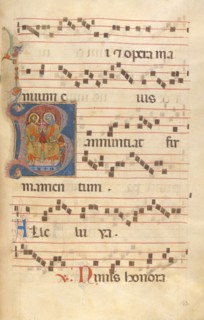 i ⁊ opera ma
nuum e ius
annuntiat fir
mamen tum.
Alle lu ya.
℣. Nimis honora